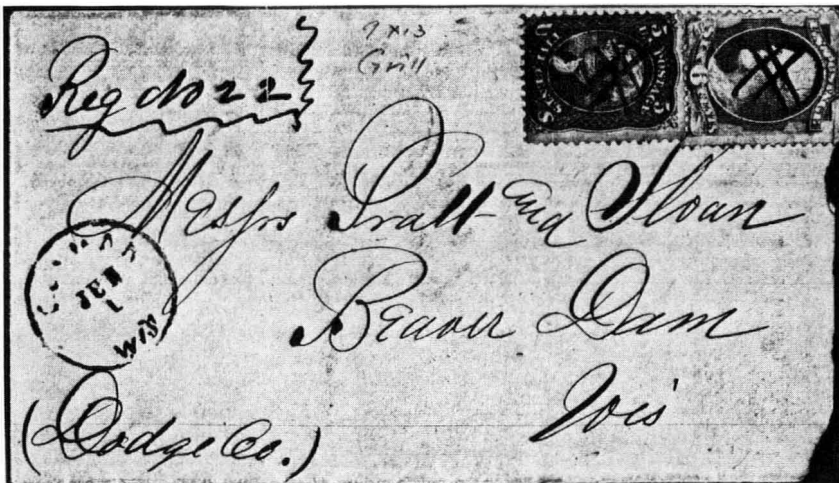 Reg No 22
9 x 13
Grill
Messrs Pratt and Sloan
Beaver Dam
Wis
JUN
1
WIS
(Dodge Co.)